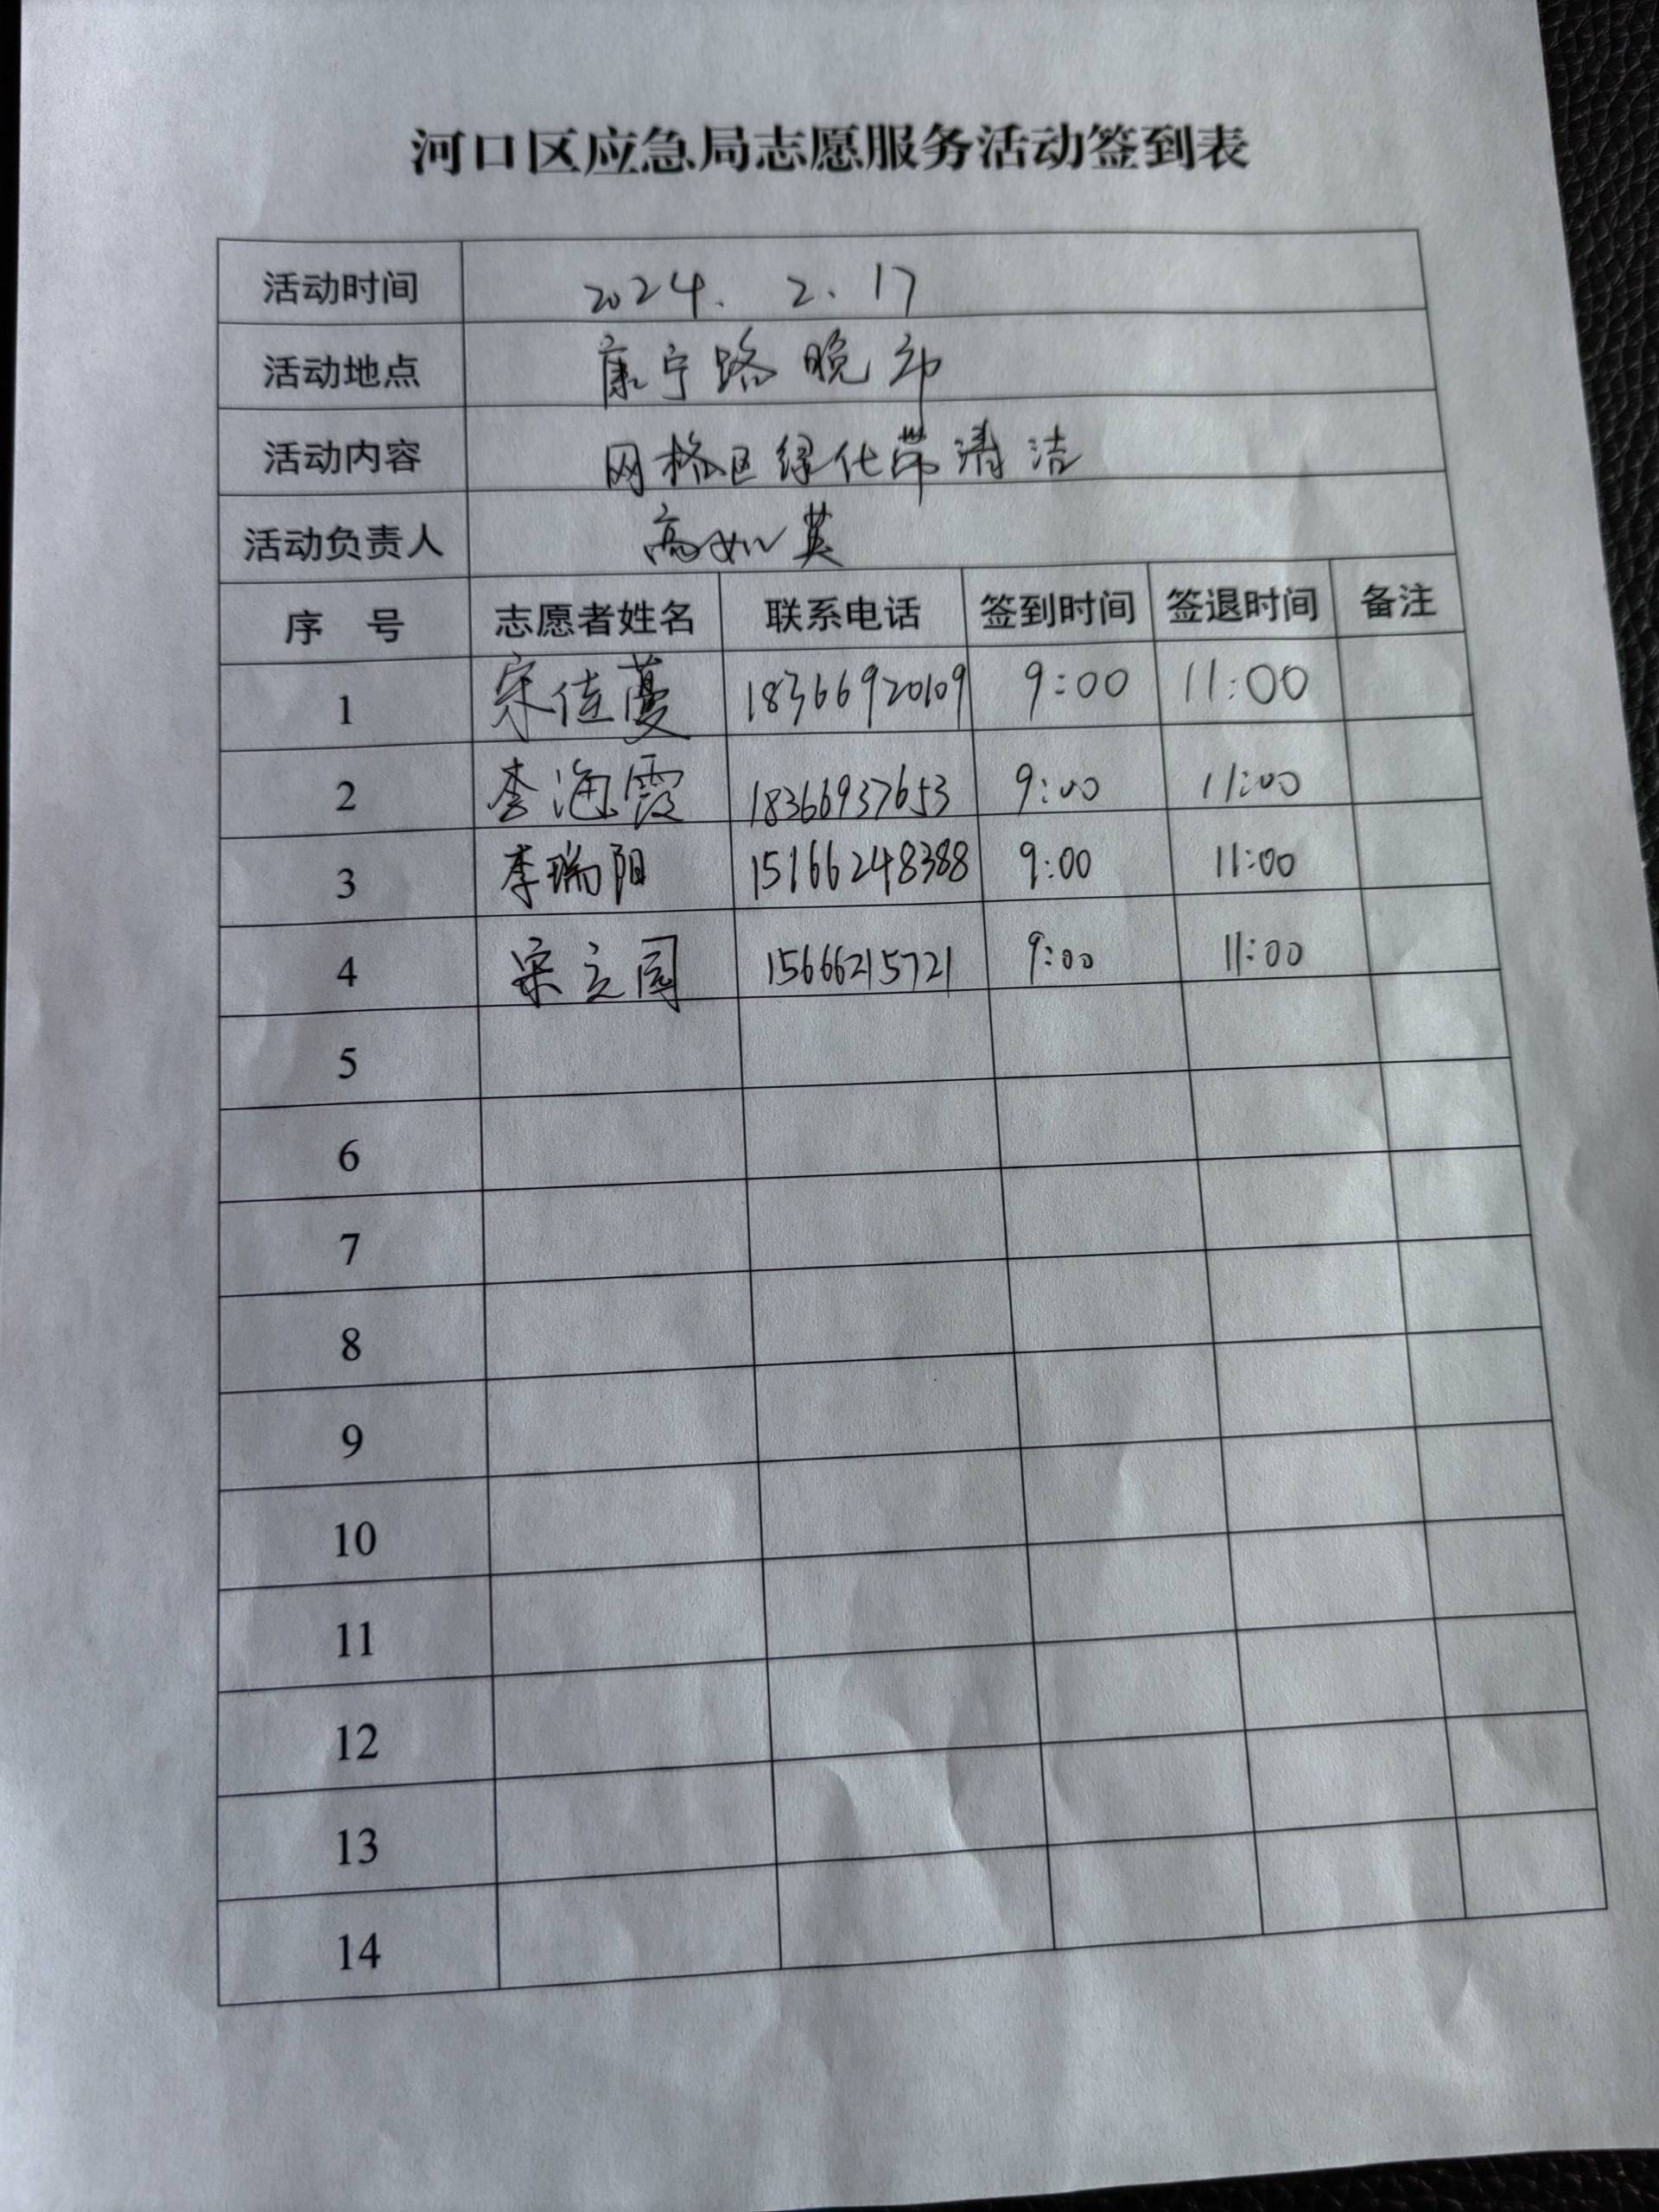 河口区应急局志愿服务活动签到表
活动时间 2024. 2. 17
活动地点 康宁路晚市
活动内容 网格区绿化带清洁
活动负责人 高如英
序 号 志愿者姓名 联系电话 签到时间 签退时间 备注
1 宋佳蔓 18366920109 9:00 11:00
2 李海霞 18366937653 9:00 11:00
3 李瑞阳 15166248388 9:00 11:00
4 宋立国 15666215721 9:00 11:00
5
6
7
8
9
10
11
12
13
14